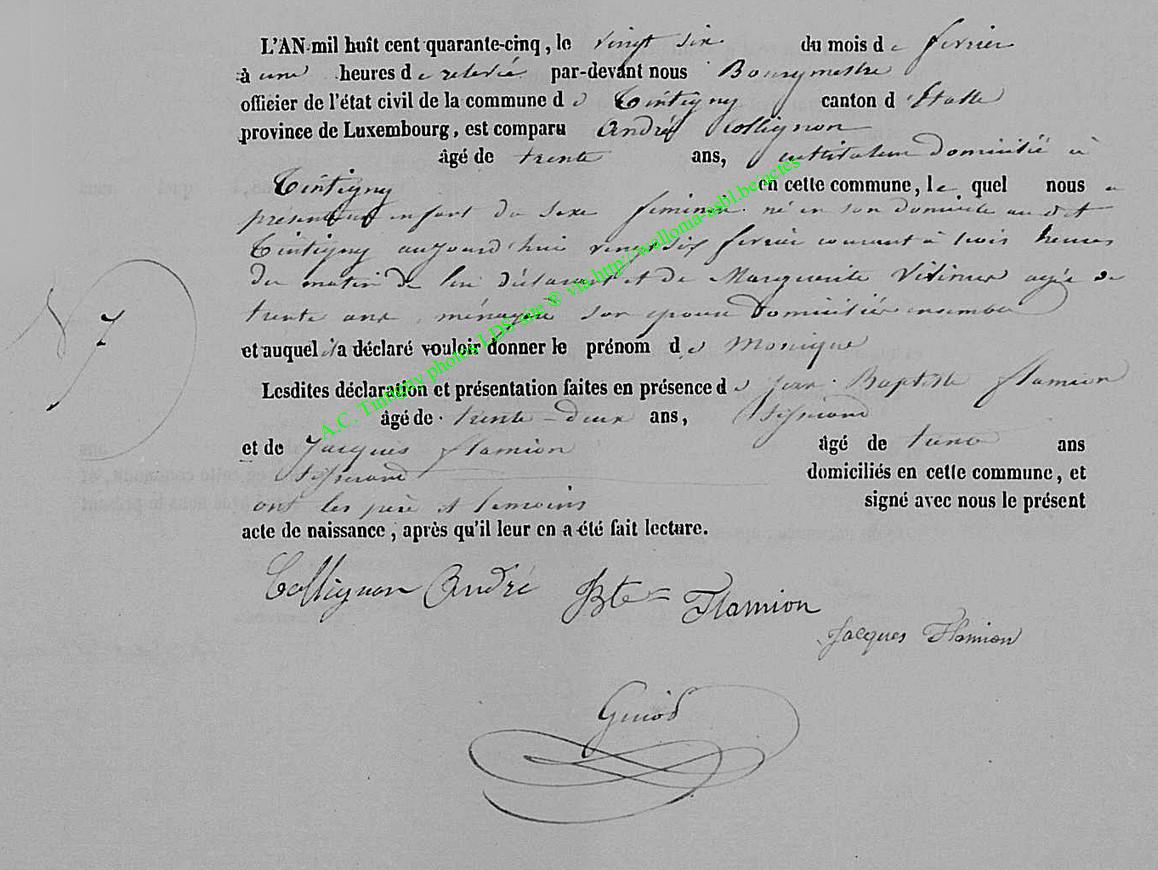 L'AN mil huit cent quarante-cinq, le vingt six du mois de fevrier
à une heures de relevée par-devant nous Bourgmestre
officier de l'état civil de la commune de Tintigny canton d'Etalle
province de Luxembourg, est comparu André Collignon
âgé de trente ans, instituteur domicilié à
Tintigny en cette commune, le quel nous a
présenté un enfant du sexe feminin né en son domicile au dit
Tintigny aujourd'hui vingt six fevrier courant à trois heures
du matin de lui déclarant et de Marguerite agée de
trente ans, ménagère son epouse domiciliés ensemble
et auquel il a déclaré vouloir donner le prénom de Monique
Lesdites déclaration et présentation faites en présence de Jean Baptiste flamion
âgé de trente-deux ans, tisserand
et de Jacques flamion âgé de ans
tisserand domiciliés en cette commune, et
ont les père et temoins signé avec nous le présent
acte de naissance, après qu'il leur en a été fait lecture.
N 7
Collignon André Bte Flamion
Jacques Flamion
A.C. Tintigny photos LDS site ® via http://wallonia-asbl.be/actes